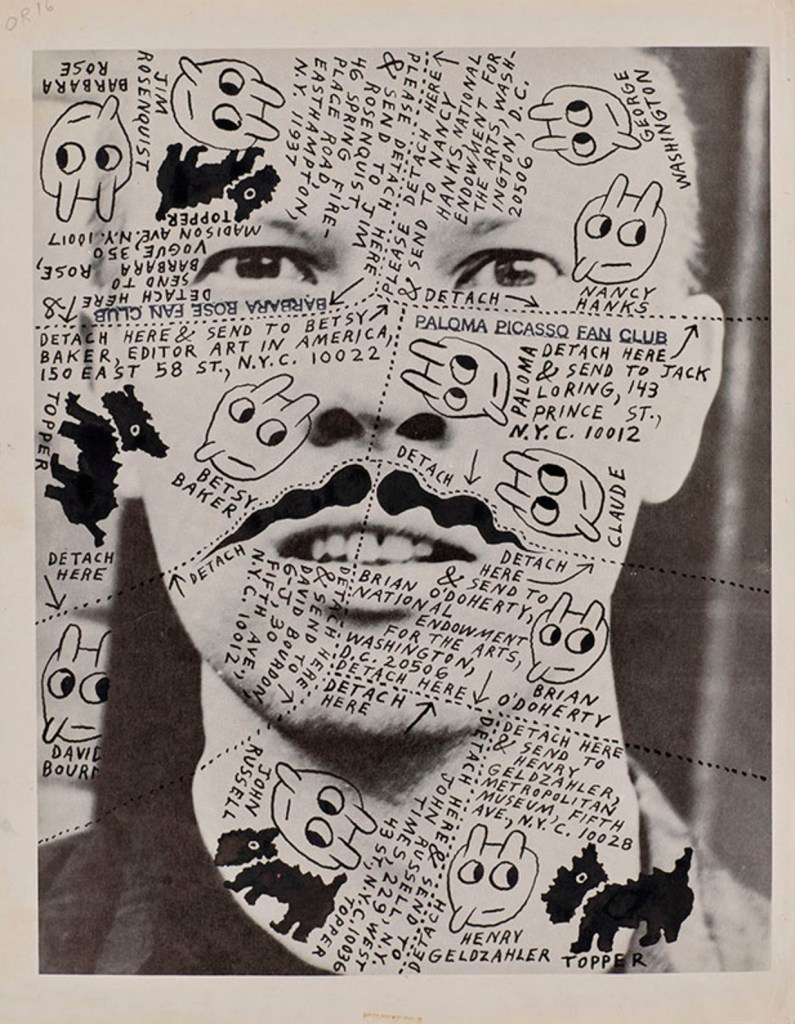 OR 16
BARBARA
ROSE
JIM
ROSENQUIST
TOPPER
DETACH HERE &
SEND TO
BARBARA ROSE,
VOGUE, 350
MADISON AVE. N.Y. 10017
BARBARA ROSE FAN CLUB
PLEASE DETACH HERE
& SEND TO JIM
ROSENQUIST
46 SPRING FIRE-
PLACE ROAD,
EASTHAMPTON,
N.Y. 11937
PLEASE DETACH HERE
& SEND TO NANCY
HANKS, NATIONAL
ENDOWMENT FOR
THE ARTS, WASH-
INGTON, D.C.
20506
GEORGE
WASHINGTON
NANCY
HANKS
DETACH
DETACH HERE & SEND TO BETSY
BAKER, EDITOR ART IN AMERICA,
150 EAST 58 ST., N.Y.C. 10022
PALOMA PICASSO FAN CLUB
PALOMA
DETACH HERE
& SEND TO JACK
LORING, 143
PRINCE ST.,
N.Y.C. 10012
TOPPER
BETSY
BAKER
DETACH
CLAUDE
DETACH
HERE
DETACH
DETACH HERE
& SEND TO
DAVID BOURDON
FIFTH AVE,
N.Y.C. 10012
DETACH
HERE
& SEND TO
BRIAN O'DOHERTY,
NATIONAL
ENDOWMENT
FOR THE ARTS,
WASHINGTON,
D.C. 20506
DETACH HERE
BRIAN
O'DOHERTY
DETACH
HERE
DAVID
BOUR
JOHN
RUSSELL
DETACH HERE & SEND TO
JOHN RUSSELL, N.Y.
TIMES, 229 WEST
43 ST., N.Y.C. 10036
TOPPER
DETACH HERE
& SEND TO
HENRY
GELDZAHLER,
METROPOLITAN
MUSEUM, FIFTH
AVE, N.Y.C. 10028
HENRY
GELDZAHLER
TOPPER